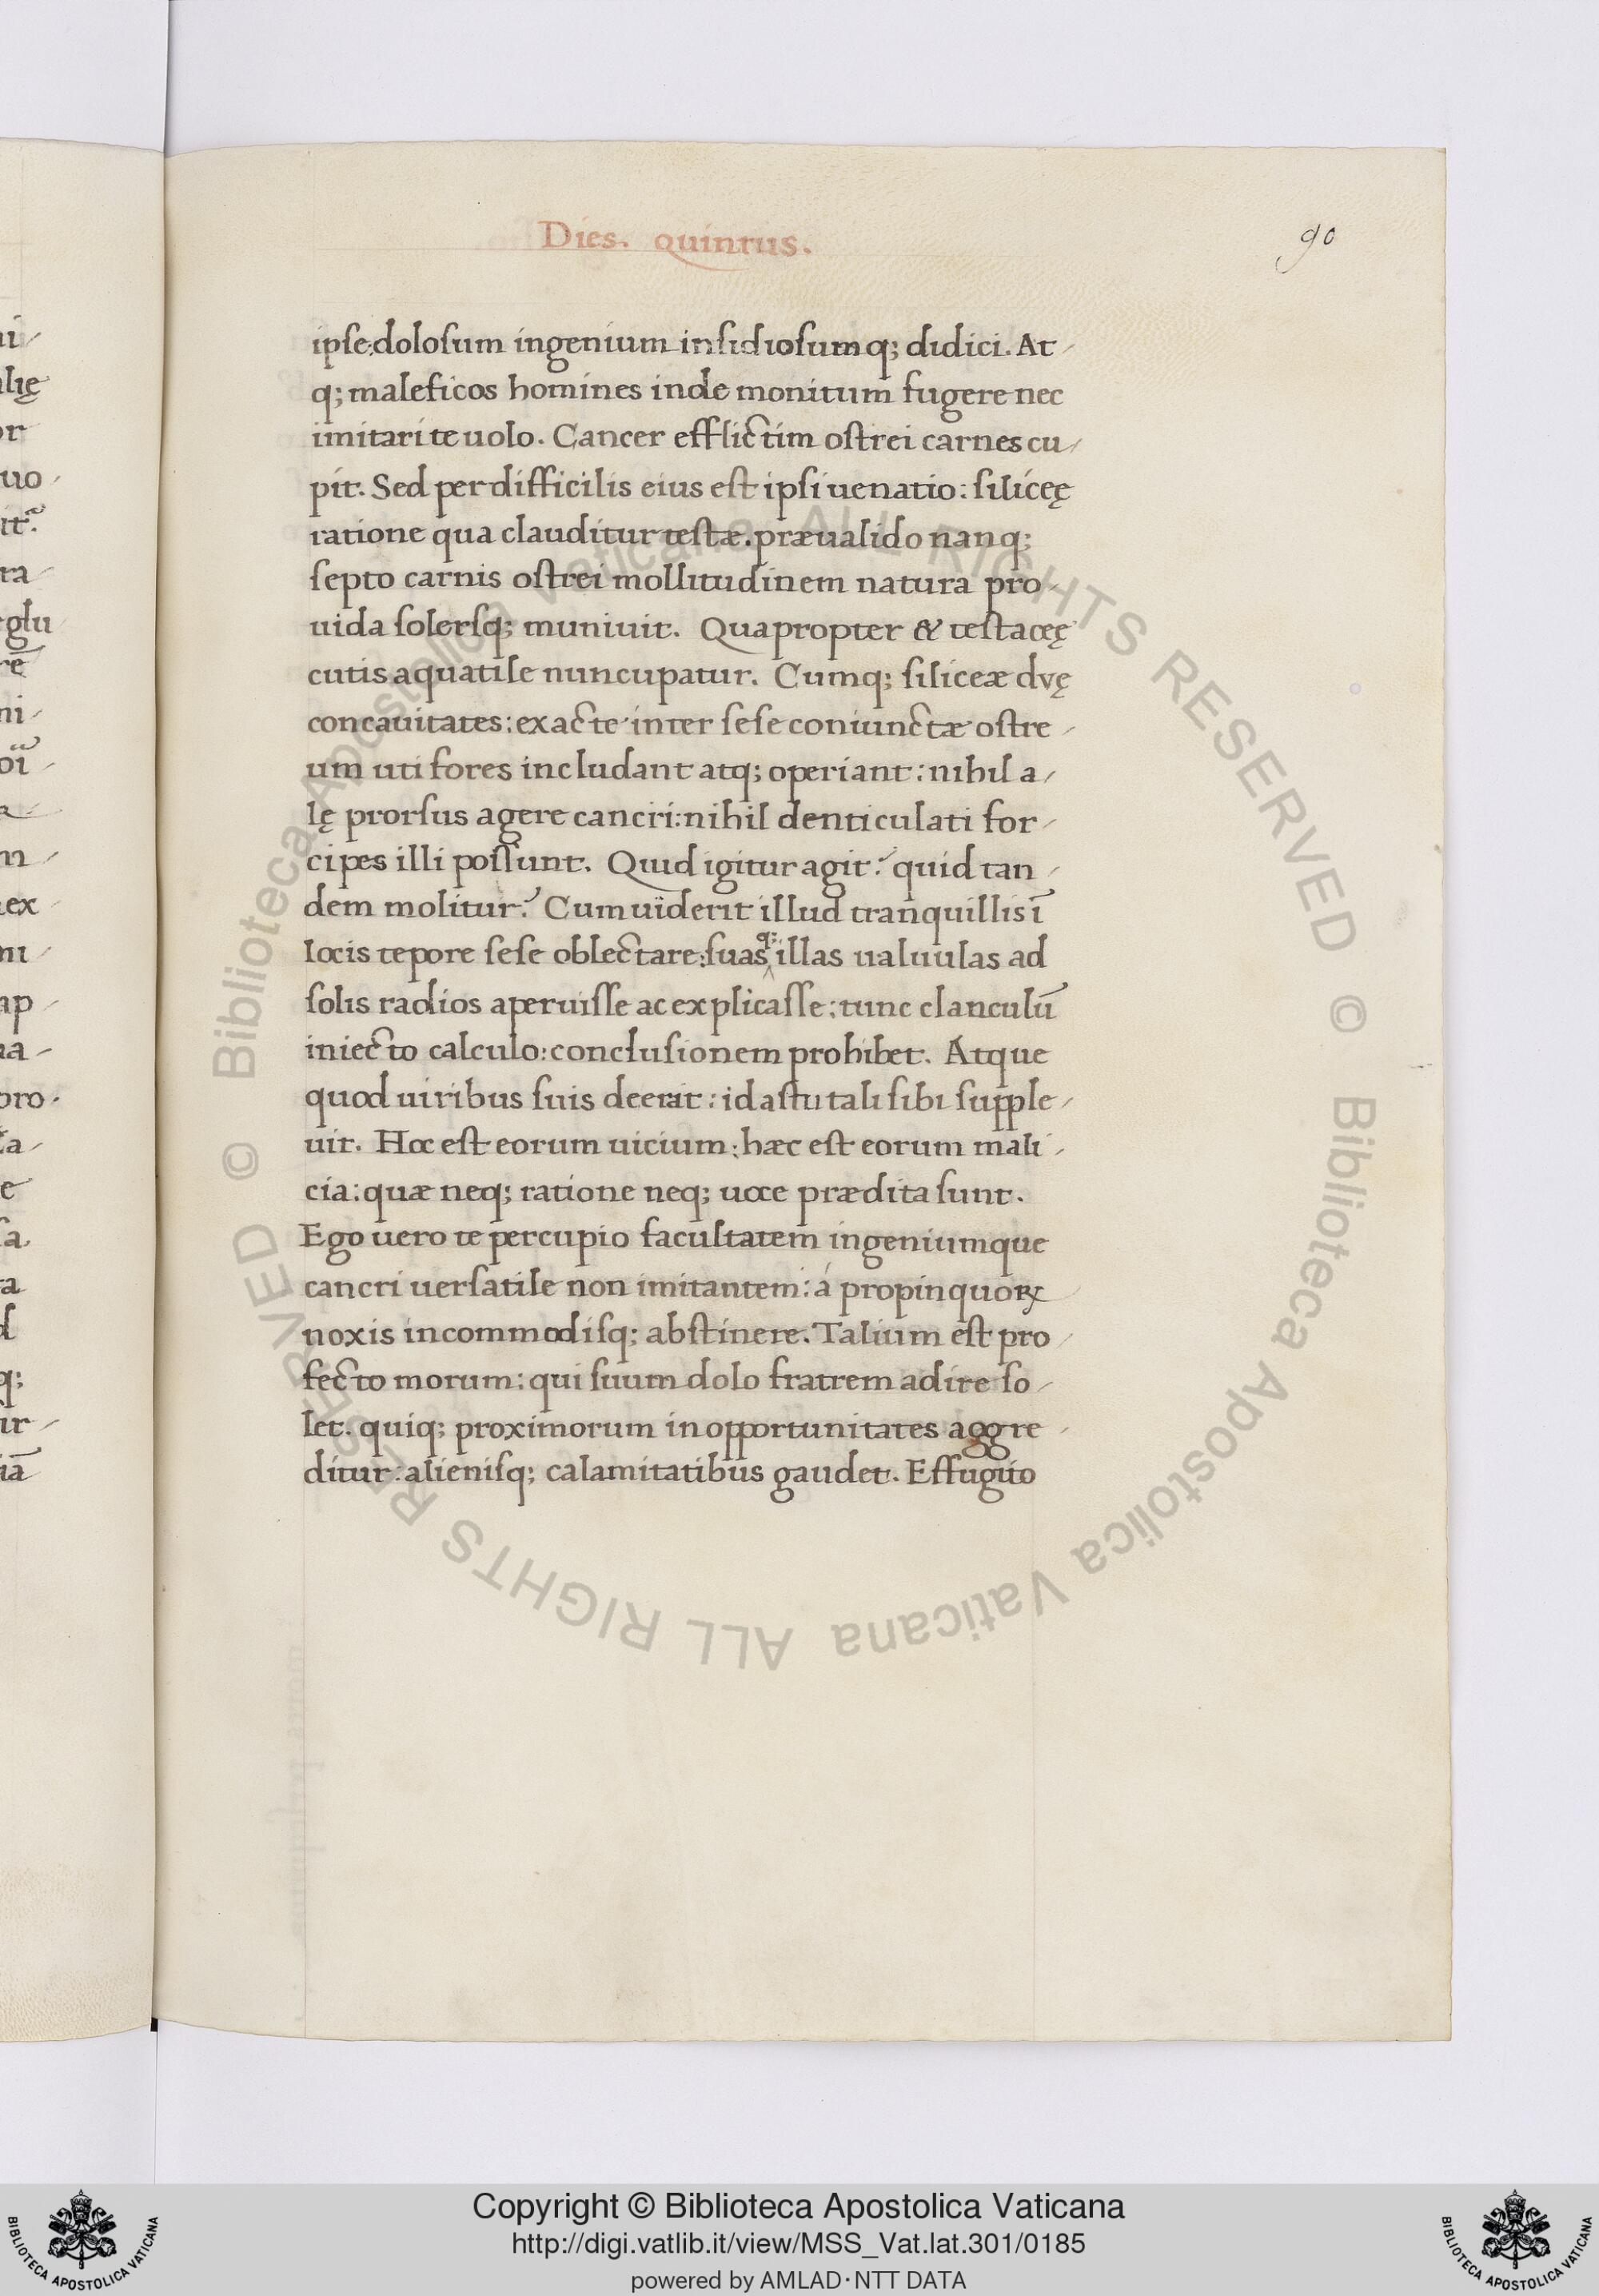 Dies. quintus.
90
ipse:dolosum ingenium insidiosumq; didici. At-
q; maleficos homines inde monitum fugere nec
imitari te uolo. Cancer efflictim ostrei carnes cu-
pit. Sed perdifficilis eius est ipsi uenatio: silíceę
ratione qua clauditur testæ. præualido nanq;
septo carnis ostrei mollitudinem natura pro-
uida solersq; muniuit. Quapropter & testaceę
cutis aquatile nuncupatur. Cumq; siliceæ dvę
concauitates: exacte inter sese coniunctæ ostre-
um uti fores includant atq; operiant: nihil a-
lę prorsus agere cancri: nihil denticulati for-
cipes illi possunt. Quid igitur agit? quid tan-
dem molitur? Cum uiderit illud tranquillis ī
locis tepore sese oblectare: suasq; illas ualuulas ad
solis radios aperuisse ac explicasse: tunc clanculū
iniecto calculo: conclusionem prohibet. Atque
quod uiribus suis deerat: id astu tali sibi supple-
uit. Hoc est eorum uicium: hæc est eorum mali-
cia: quæ neq; ratione neq; uoce prædita sunt.
Ego uero te percupio facultatem ingeniumque
cancri uersatile non imitantem: á propinquoꝝ
noxis incommodisq; abstinere. Talium est pro-
fecto morum: qui suum dolo fratrem adire so-
let. quiq; proximorum inopportunitates aggre-
ditur: alienisq; calamitatibus gaudet. Effugito
ni-
lię
or
uo-
ra-
glu
rē
ni-
m-
ex-
ni-
ap-
na-
pro-
a-
e
sa
ta
d
q;
ur-
iā
© Biblioteca Apostolica Vaticana ALL RIGHTS RESERVED © Biblioteca Apostolica Vaticana ALL RIGHTS RESERVED
BIBLIOTECA APOSTOLICA VATICANA
Copyright © Biblioteca Apostolica Vaticana
http://digi.vatlib.it/view/MSS_Vat.lat.301/0185
powered by AMLAD·NTT DATA
BIBLIOTECA APOSTOLICA VATICANA